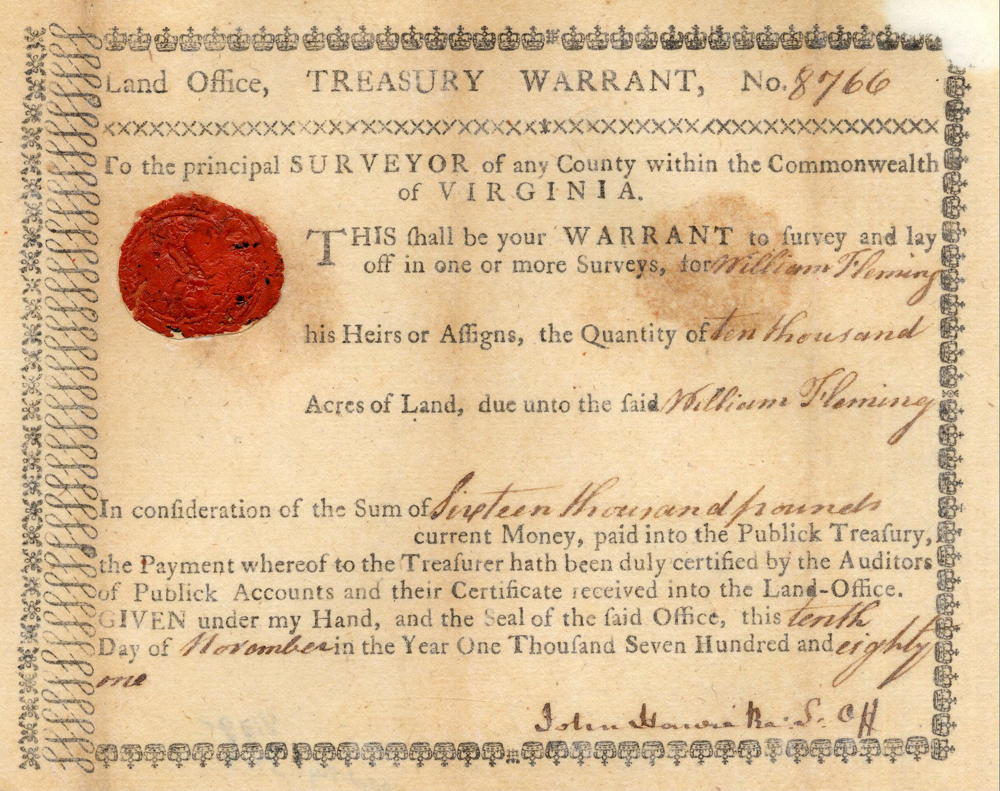 Land Office, TREASURY WARRANT, No. 8766
To the principal SURVEYOR of any County within the Commonwealth
of VIRGINIA.
THIS ſhall be your WARRANT to ſurvey and lay
off in one or more Surveys, for William Fleming
his Heirs or Aſſigns, the Quantity of ten thousand
Acres of Land, due unto the ſaid William Fleming
In conſideration of the Sum of Sixteen thousand pounds
current Money, paid into the Publick Treaſury,
the Payment whereof to the Treaſurer hath been duly certified by the Auditors
of Publick Accounts and their Certificate received into the Land-Office.
GIVEN under my Hand, and the Seal of the ſaid Office, this tenth
Day of November in the Year One Thouſand Seven Hundred and eighty
one
John Harvie Re. L. Off